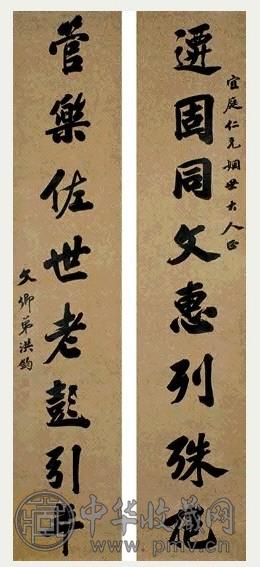 遷固同文惠列殊
宜庭仁兄姻世大人正
管樂佐世老彭引年
文卿弟洪鈞
中华收藏网
www.pmv.cn